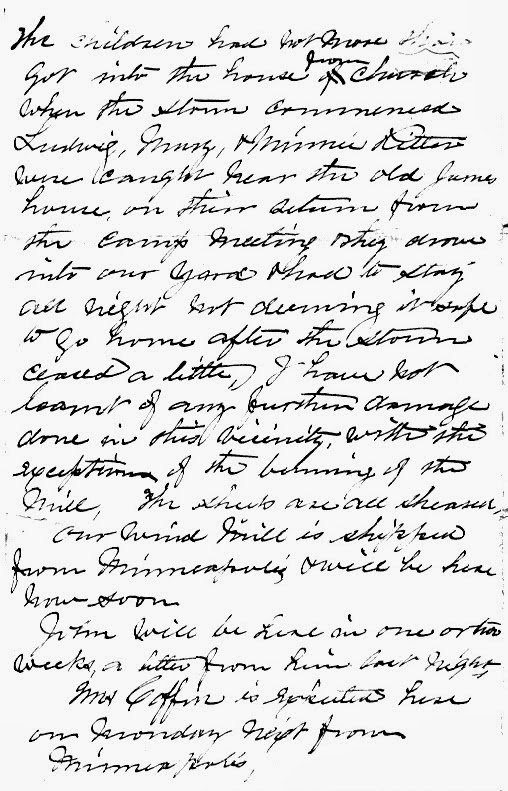 The children had not more than
got into the house from of church
when the storm commenced
Ludwig, Mary, & Minnie Ritter
were caught near the old James
house, on their return from
the camp meeting & they drove
into our yard & had to stay
all night not deeming it safe
to go home after the storm
ceased a little, I have not
learnt of any further damage
done in this vicinity, with the
exception of the burning of the
Mill, The sheep are all sheared,
our Wind Mill is shipped
from Minneapolis & will be here
now soon
John will be here in one or two
weeks, a letter from him last night,
Mrs Coffin is expected here
on Monday next from
Minneapolis,